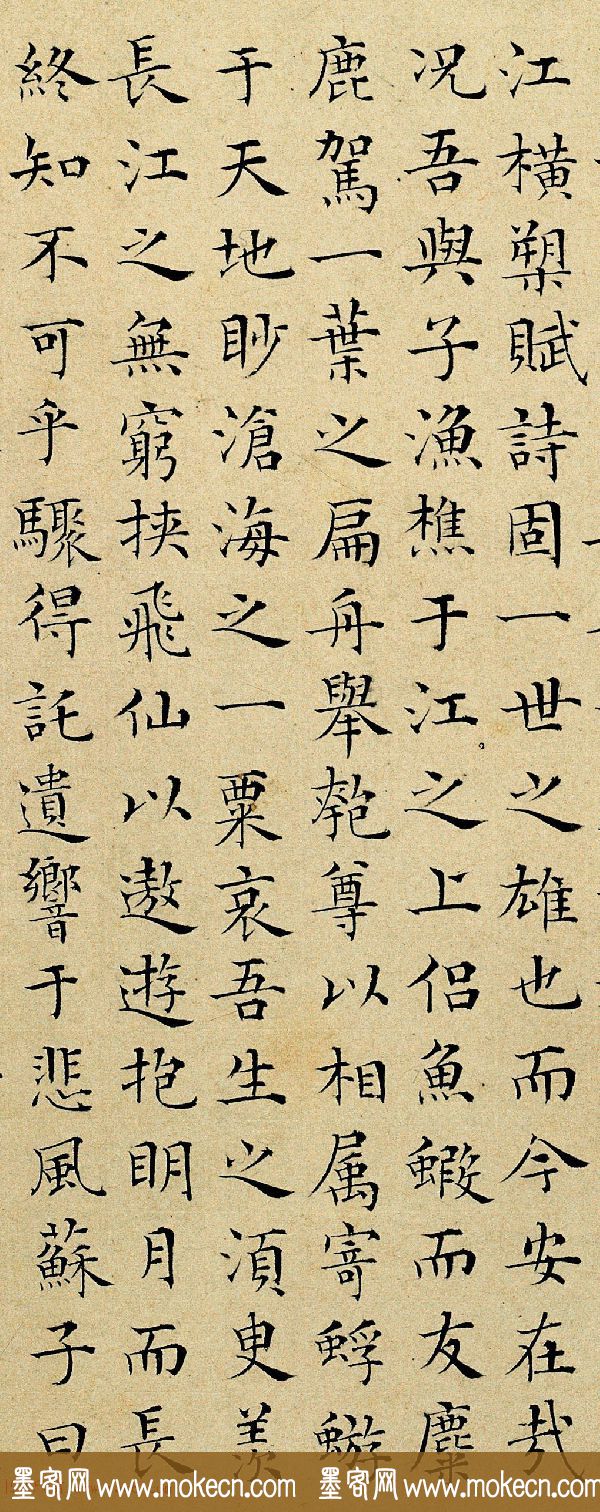 江橫槊賦詩固一世之雄也而今安在哉
况吾與子漁樵于江之上侣魚蝦而友麋
鹿駕一葉之扁舟舉匏尊以相属寄蜉蝣
于天地眇滄海之一粟哀吾生之須臾羨
長江之無窮挾飛仙以遨遊抱明月而長
終知不可乎驟得託遺響于悲風蘇子曰
墨客网 www.mokecn.com 墨客网 www.mokecn.com